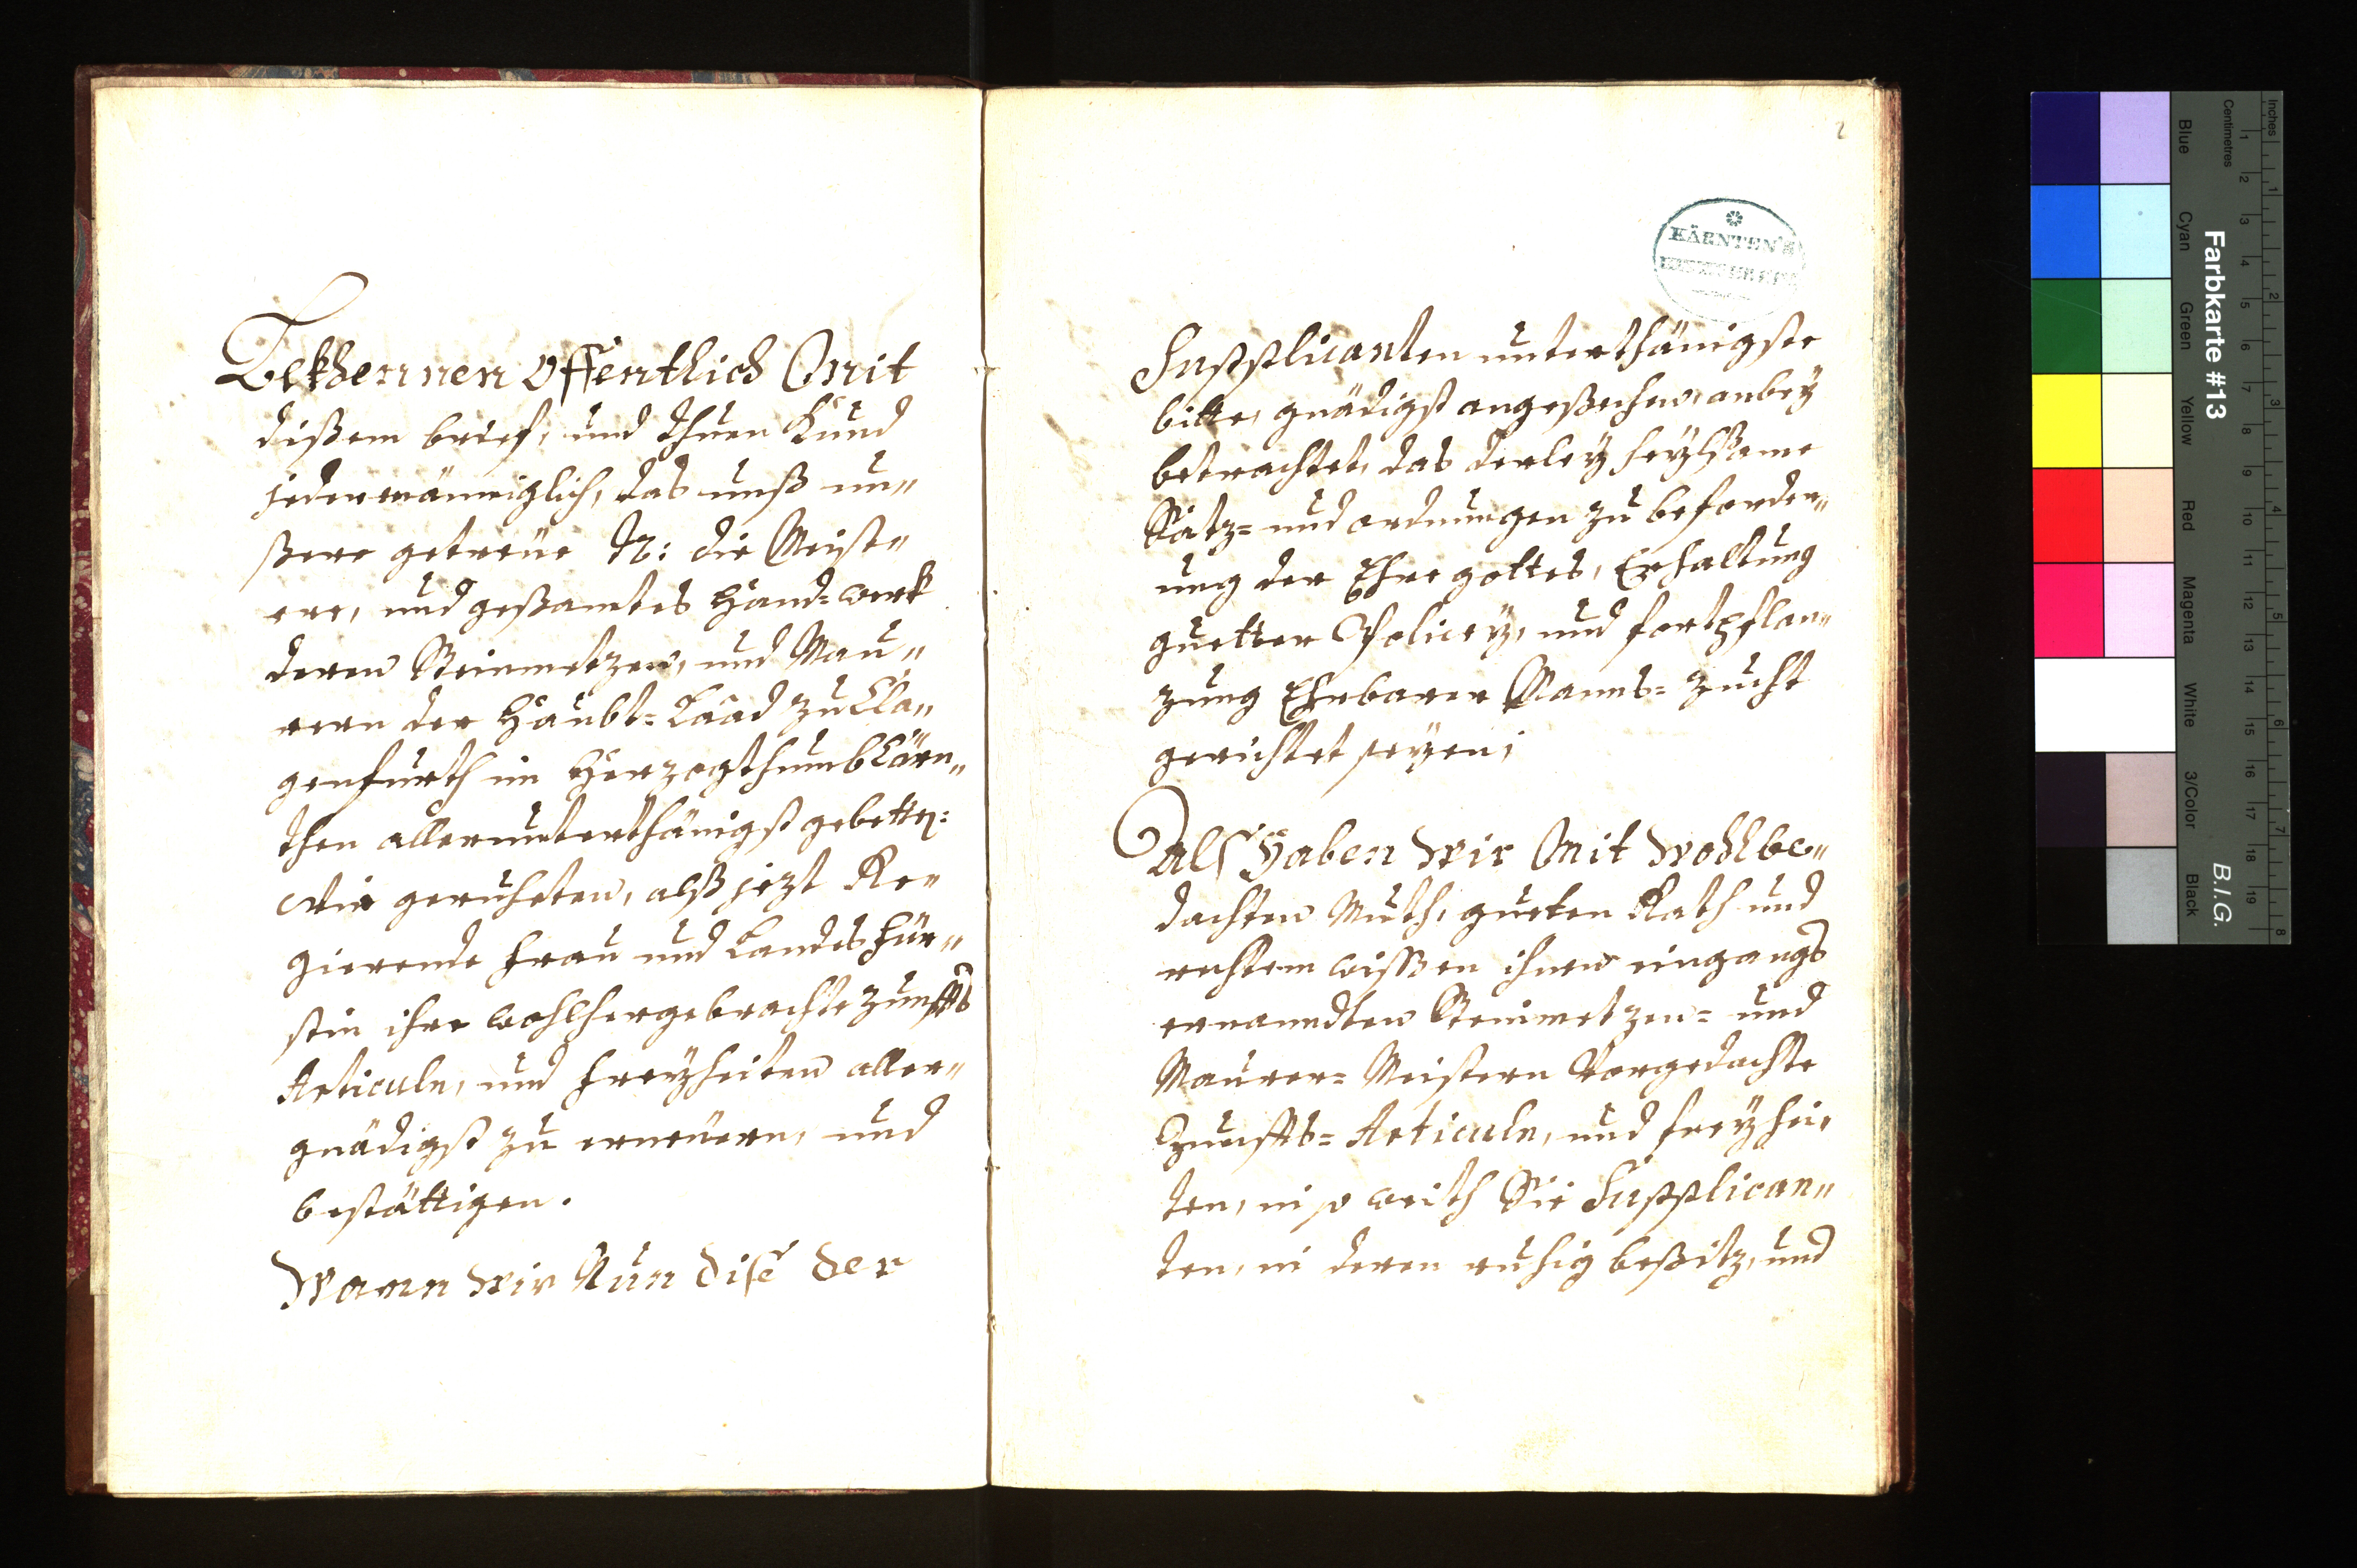 Bekhennen offentlich Mit
dißem brief, und thuen Kund
jedermänniglich, das unß un„
ßere getreüe N: die Meiste„
rer, und geßamtes Hand=werk
deren Steinmetzen, und Mau„
rern der Haubt=Laad zu Cla„
genfurth im Herzogthumb Cärn„
then allerunterthänigst gebetten:
Wir geruheten, alß jezt Re„
gierende Frau und Landts Für„
stin ihre wohlhergebrachte Zunffts
Articuln, und Freyheiten aller„
gnädigst zu erneüern, und
bestättigen.
Wann wir Nun dise der
2
KÄRNTEN'S
Supplicanten unterthänigste
bitte, gnädigst angeßehen, anbey
betrachtet, das derley heylßame
Satz= und ordnungen zu beforder„
ung der Ehre gottes, Erhaltung
guetter Policey, und fortpflan„
zung Ehrbarer Manns=Zucht
gerichtet seyen;
Als Haben wir Mit wohlbe„
dachten Muth, gueten Rath und
rechtem wissen ihnen eingangs
ernanndten Steinmetzen= und
Maurer=Meistern Vorgedachte
Zunffts=Articuln, und freyhei„
ten, in so weith Sie Supplican„
ten, in deren ruhig beßitz, und
Farbkarte #13
B.I.G.
Inches
Centimetres
Blue
Cyan
Green
Yellow
Red
Magenta
White
3/Color
Black